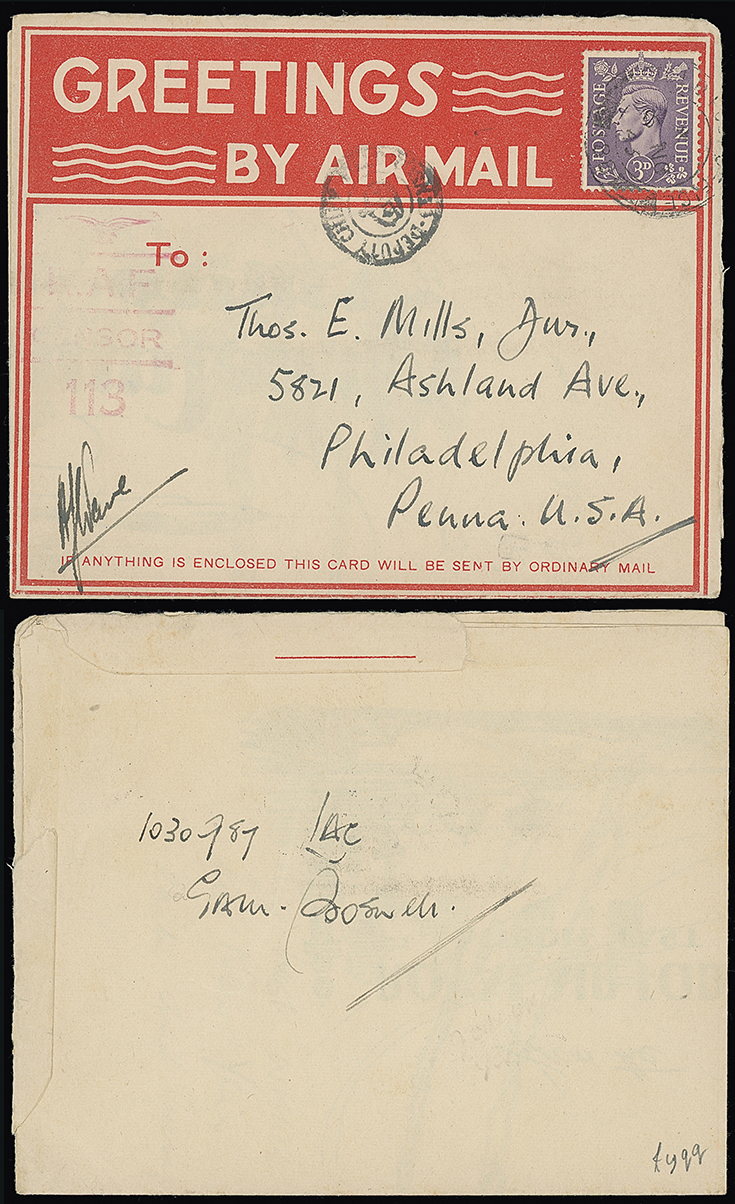 GREETINGS
BY AIR MAIL
POSTAGE REVENUE
3D
DEPUTY CHI
To:
R.A.F.
CENSOR
113
Thos. E. Mills, Jur.,
5821, Ashland Ave.,
Philadelphia,
Penna. U.S.A.
IF ANYTHING IS ENCLOSED THIS CARD WILL BE SENT BY ORDINARY MAIL
1030787 LAC